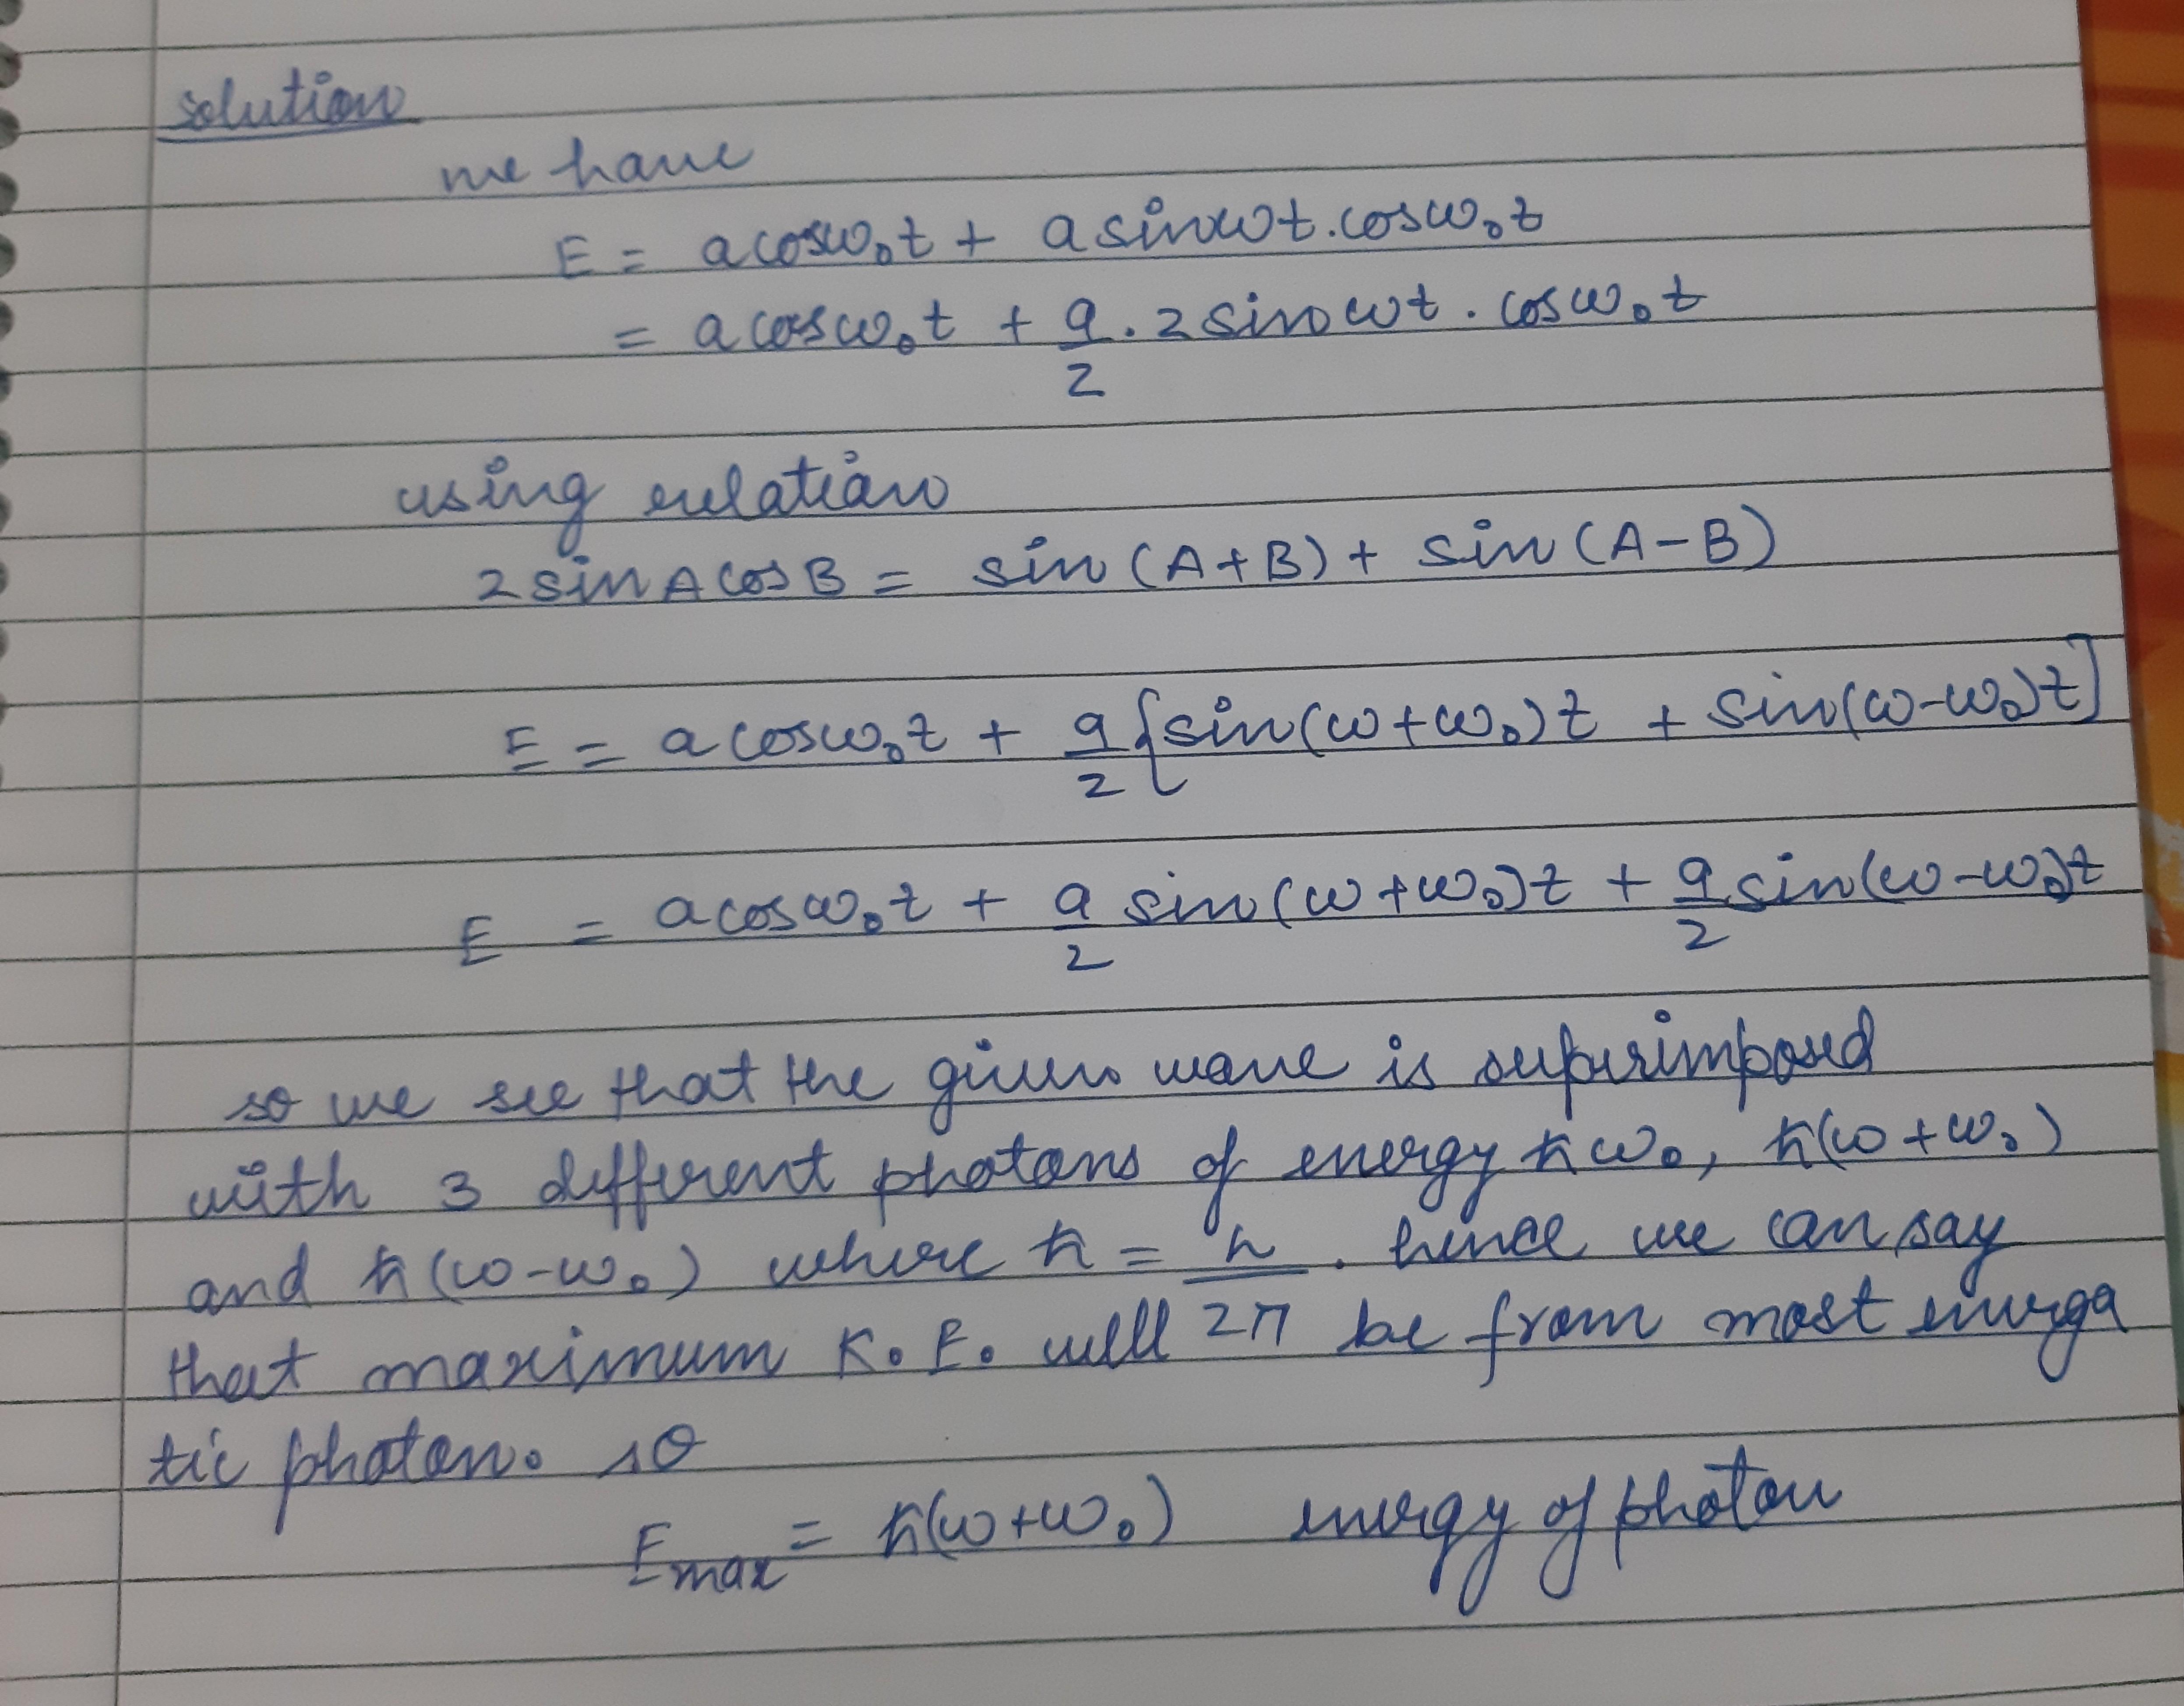 solution
we have
E = a cosω₀t + a sinωt.cosω₀t
= a cosω₀t + a/2 . 2 sinωt . cosω₀t
using relation
2 sin A cos B = sin (A+B) + sin (A-B)
E = a cosω₀t + a/2 {sin(ω+ω₀)t + sin(ω-ω₀)t]
E = a cosω₀t + a/2 sin(ω+ω₀)t + a/2 sin(ω-ω₀)t
so we see that the given wave is superimposed
with 3 different photons of energy ħω₀, ħ(ω+ω₀)
and ħ(ω-ω₀) where ħ = h/2π . hence we can say
that maximum K.E. will be from most energa
tic photon. so
Emax = ħ(ω+ω₀) energy of photon